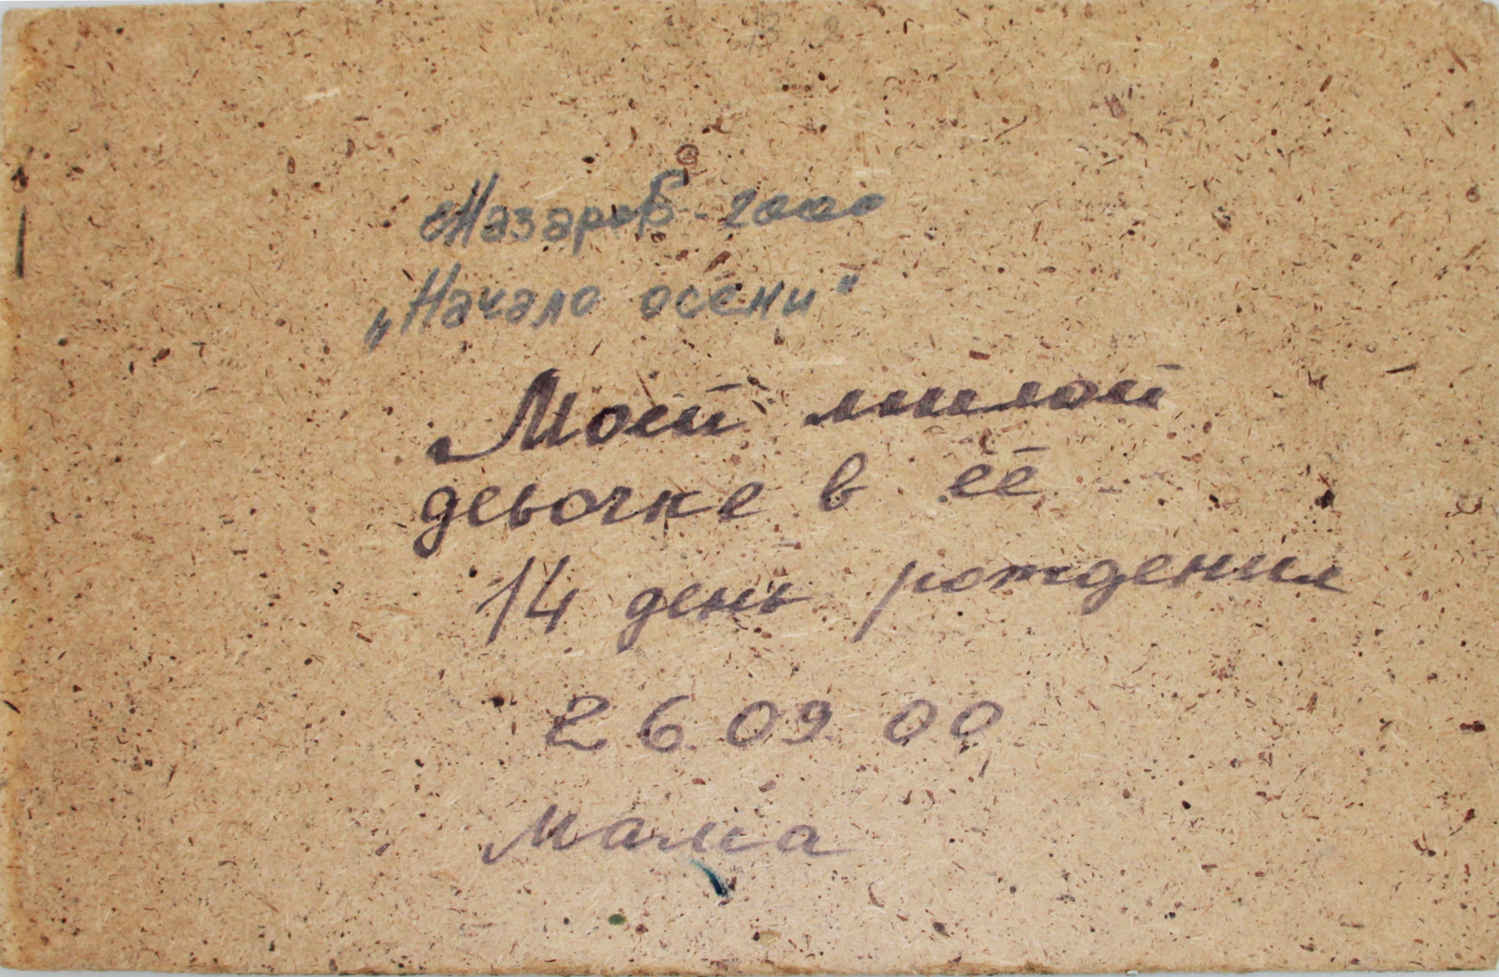 Назаров - 2000
„Начало осени"
Моей милой
девочке в её
14 день рождения
26.09.00
мама